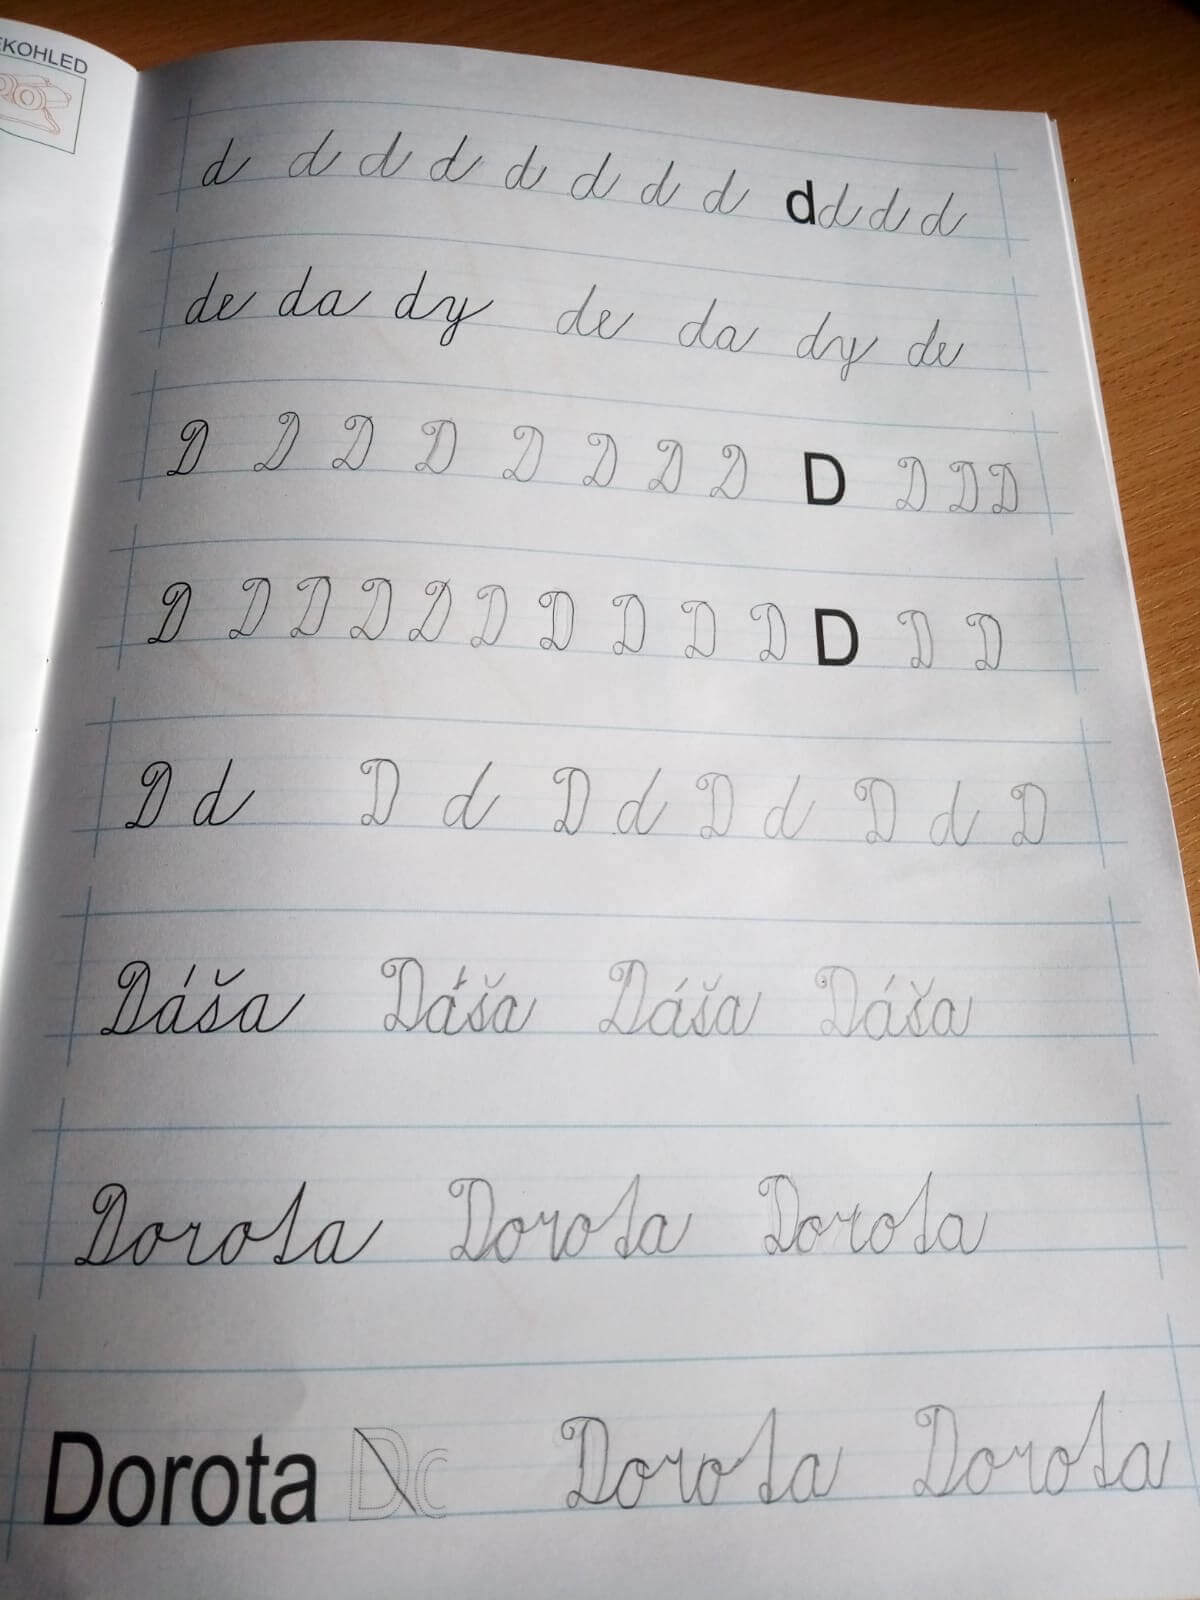 EKOHLED
d d d d d d d d d d d d
de da dy de da dy de
D D D D D D D D D D D D
D D D D D D D D D D D D D
D d D d D d D d D d D
Dáša Dáša Dáša Dáša
Dorota Dorota Dorota
Dorota Dorota Dorota